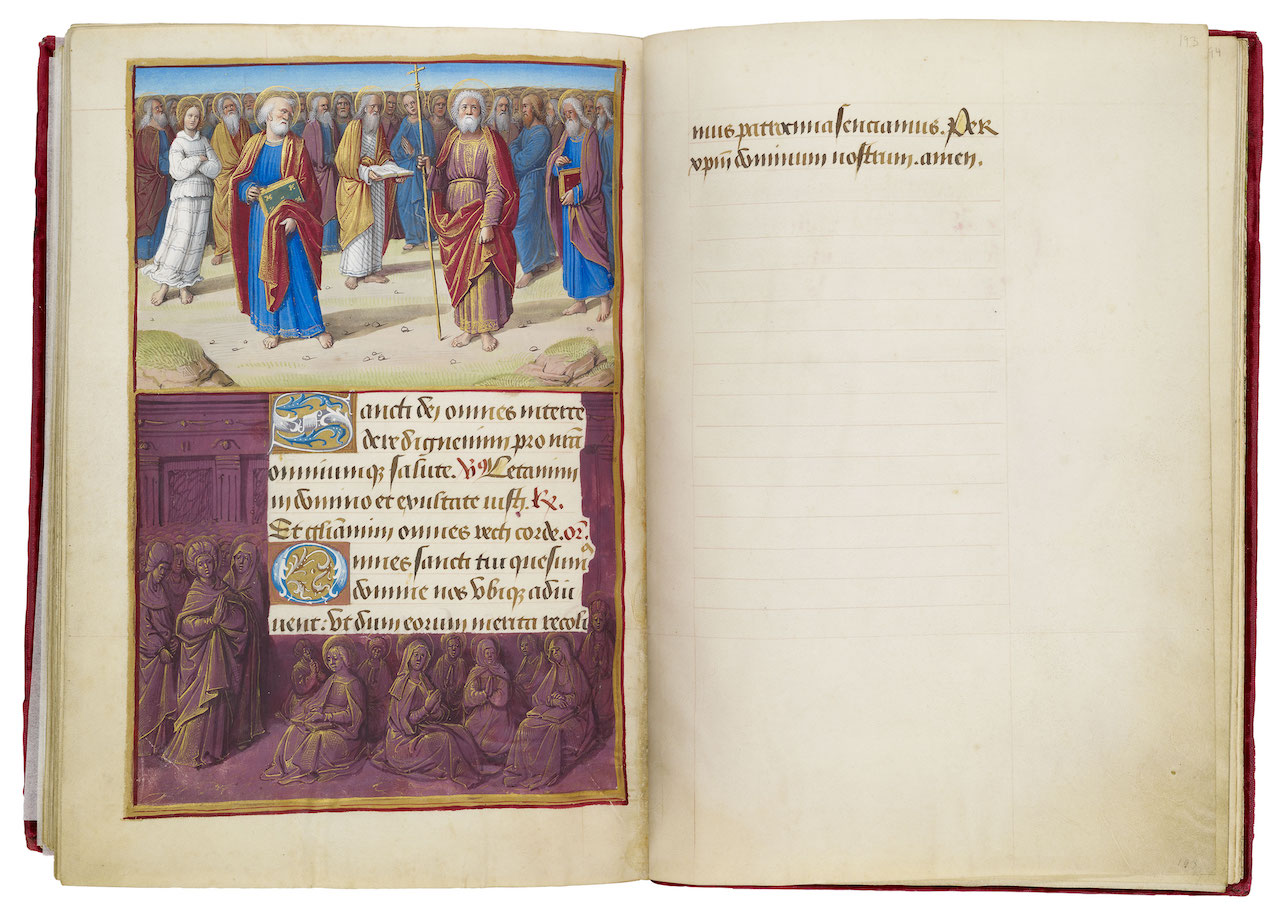 Sancti dei omnes interce
dere dignemini pro nr̄a
omniumq; salute. V9 Letamini
in domino et exultate iusti. R̷.
Et gl̄iamini omnes recti corde. or̄.
Omnes sancti tui quesum9
domine nos vbiq; adiu
uent: vt dum eorum merita recoli
193
94
mus patrocinia senciamus. Per
xp̄m dominum nostrum. amen.